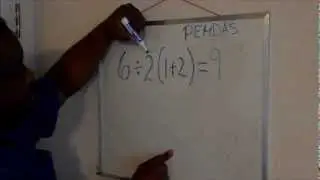 PEMDAS
6÷2(1+2)=9